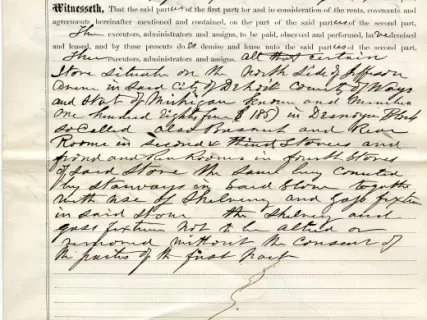 Witnesseth, That the said parties of the first part for and in consideration of the rents, covenants and
agreements, hereinafter mentioned and contained, on the part of the said parties of the second part,
Their executors, administrators and assigns, to be paid, observed and performed, have demised
and leased, and by these presents do demise and lease unto the said parties of the second part,
Their executors, administrators and assigns. all that certain
Store situate on the North Side of Jefferson
Avenue in said City of Detroit County of Wayne
and State of Michigan Known and Number
One hundred Eighty five (185) in Desnoyer Block
so Called also Basement and Rear
Rooms in second & third Stories and
front and Rear Rooms in fourth Stories
of said Store the same being connected
by stairways in said Store together
with use of Shelving and Gass fixtures
in said store the Shelving and
gass fixtures not to be altered or
removed without the Consent of
the parties of the first part